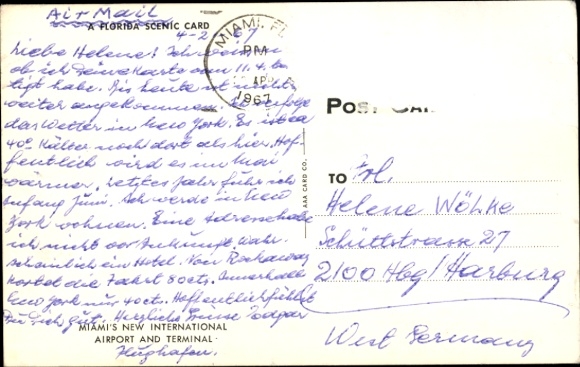 Air Mail
A FLORIDA SCENIC CARD
MIAMI, FL
PM
APR
1967
4-2 67
Liebe Helene! Ich weiss nicht
ob ich Deine Karte vom 11.4. be
tigt habe. Bis heute ist nichts
weiter angekommen. Ich verfolge
das Wetter in New York. Es ist ca
40° kälter noch dort als hier. Hof
fentlich wird es im Mai
wärmer. Letztes Jahr fuhr ich
anfang Juni. Ich werde in New
York wohnen. Eine Adresse habe
ich nicht vor Ankunft. Wahr
scheinlich ein Hotel. Von Rockaway
kostet die Fahrt 80 cts. Innerhalb
New York nur 40 cts. Hoffentlich fühlst
Du Dich gut. Herzliche Grüsse Edgar
MIAMI'S NEW INTERNATIONAL
AIRPORT AND TERMINAL
Flughafen.
AAA CARD CO.
POST CAR
TO Frl.
Helene Wöhke
Schüttstrasse 27
2100 Hbg/Harburg
West Germany